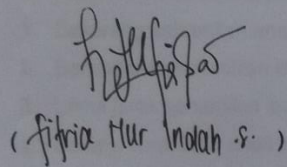 ( fitria Nur Indah .S. )